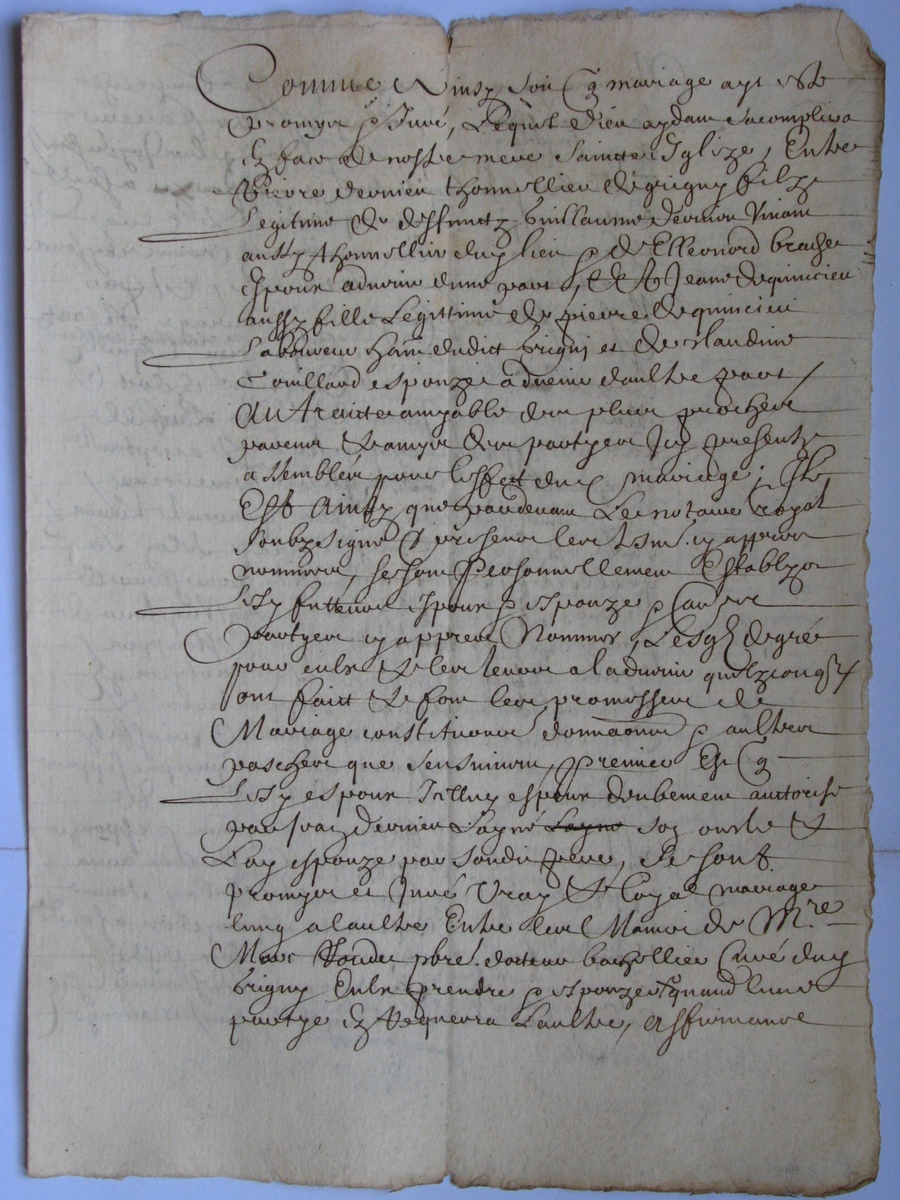 Comme Ainsy soit q mariage ayt este
promys & Juré, Lequel dieu aydant sacomplira
En face de nostre mere Saincte Eglize, Entre
Pierre dernieu thonnellier de grigny filz
Legitime de deffunctz Guillaume dernieu vivant
aussy thonnellier dudict lieu & de Elleonord brachet
Espoux advenir dune part, et Jeane dequincieu
aussy fille Legitime de pierre dequincieu
Laboureur hab dudict Grigny et de Claudine
Couillard esponze advenir daultre part /
Au traicte amyable des plus proches
parens & amys des partyes Icy presentz
assemblés pour leffect dud mariage, Il
Est Ainsy que pardevant Le notaire Royal
soubzsigné & presence les tesm. cy appres
nommes, se sont personnellement Establys
Lesd futeurs espoux & esponze &
partyes cy appres Nommés, Lesqlz de gré
pour eulx & les leurs a ladvenir quilzconqs /
ont faict & font les promesses de
Mariage constitutions donnaons & aultres
pasches que sensuivent, premier Est q
Lesd espoux Icelluy espoux deubement auctorisé
par dernieu Layné Layné son oncle &
Lad esponze par sondit pere, se sont
promys et Juré vray & loyal mariage
lung a laultre Entre les Mains de Mre
Marc pbre. docteur bachellier Curé dud
Grigny Eulx prendre & esponzer quand lune
partye En Requerra Laultre, Assirmance